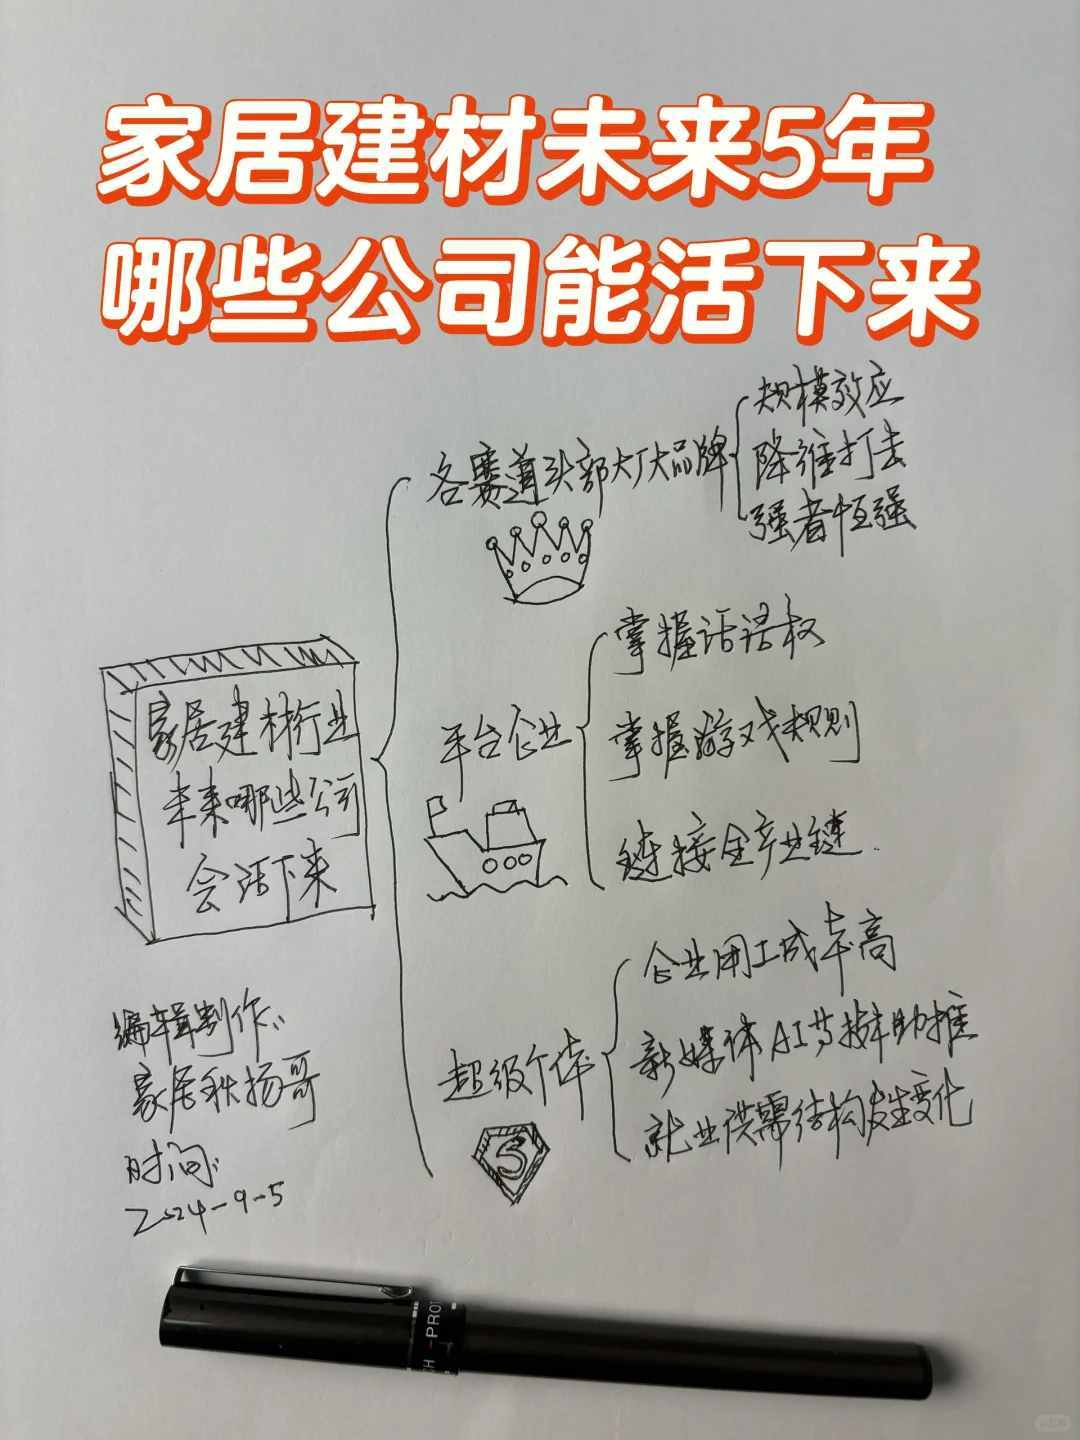 家居建材未来5年
哪些公司能活下来
家居建材行业
未来哪些公司
会活下来
各赛道头部大厂大品牌
规模效应
降维打击
强者恒强
平台企业
掌握话语权
掌握游戏规则
链接全产业链
超级个体
S
企业用工成本高
新媒体AI等技术助推
就业供需结构发生变化
编辑制作:
家居秋扬哥
时间:
2024-9-5